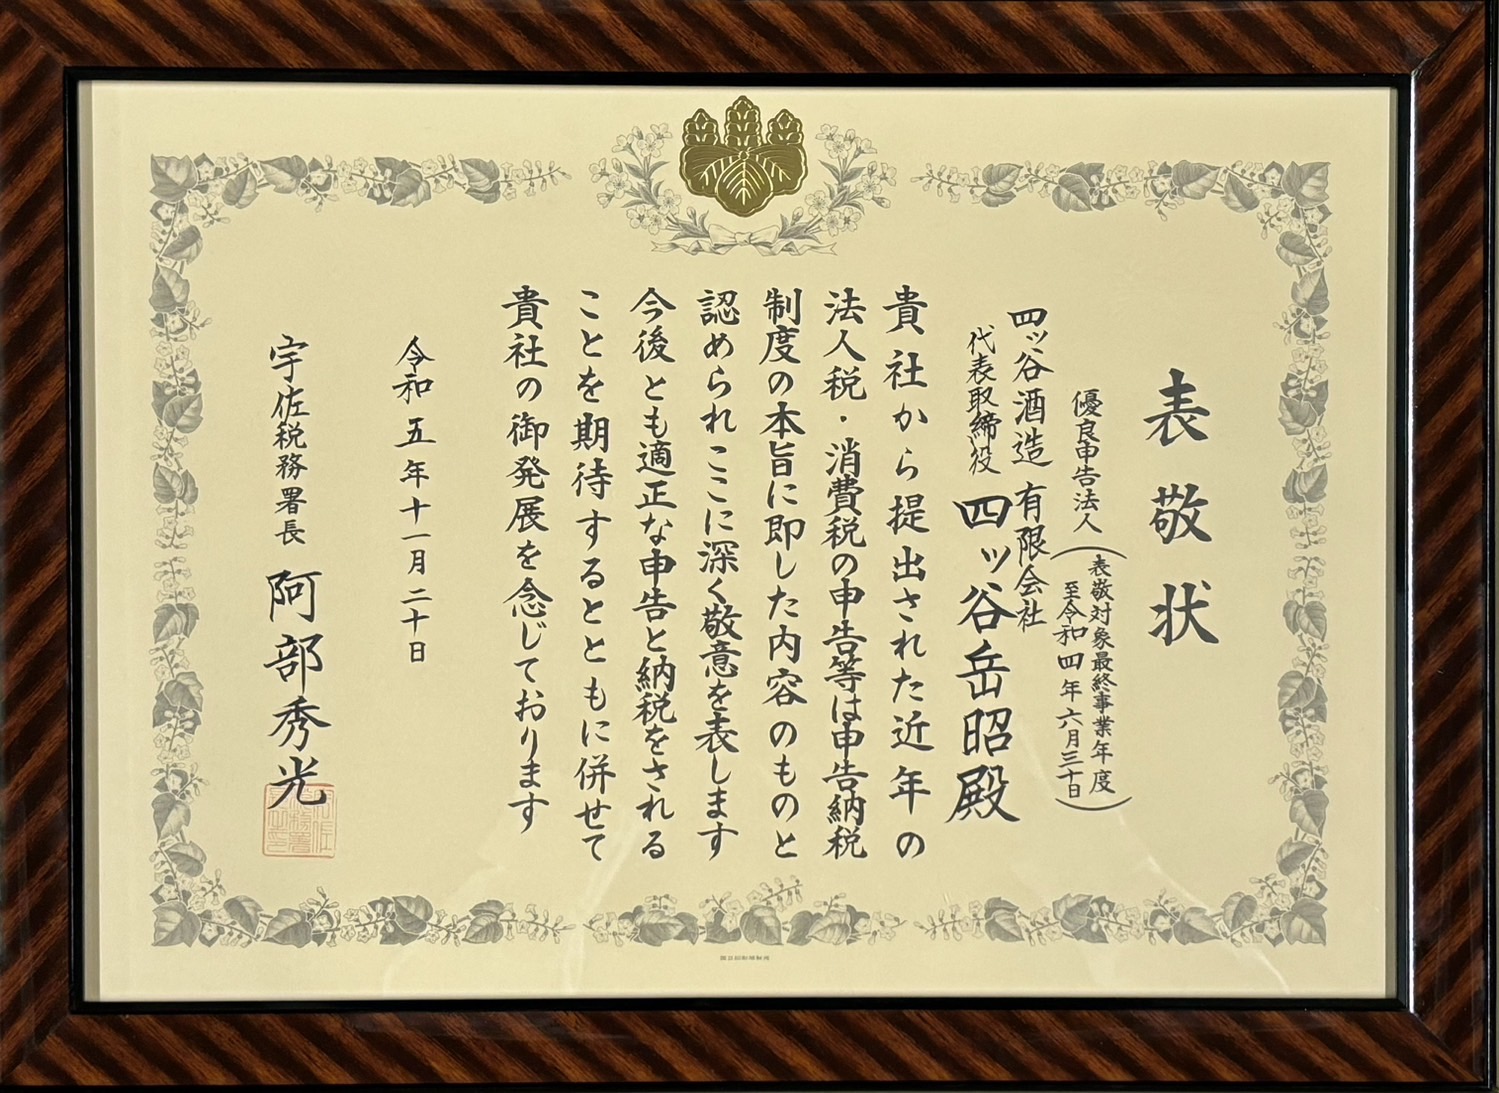 表敬状
優良申告法人
表敬対象最終事業年度
至令和四年六月三十日
四ッ谷酒造有限会社
代表取締役 四ッ谷岳昭殿
貴社から提出された近年の
法人税・消費税の申告等は申告納税
制度の本旨に即した内容のものと
認められここに深く敬意を表します
今後とも適正な申告と納税をされる
ことを期待するとともに併せて
貴社の御発展を念じております
令和五年十一月二十日
宇佐税務署長 阿部秀光